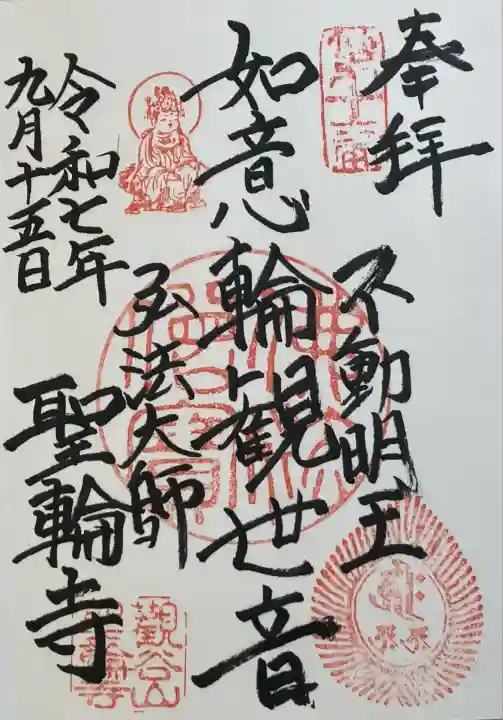 奉拝
不動明王
如意輪観世音
弘法大師
令和七年
九月十五日
聖輪寺
観谷山
聖輪寺